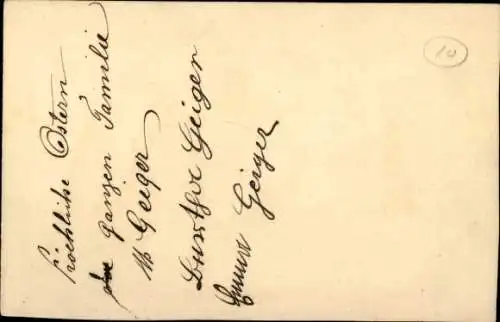 Fröhliche Ostern
der ganzen Familie
W Geiger
Geiger
Emma Geiger
10